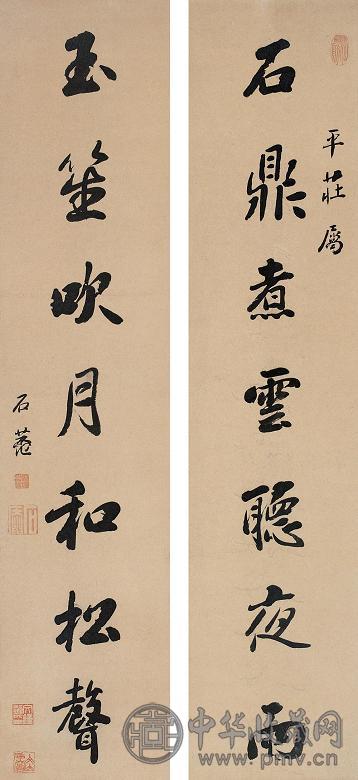 石鼎煮雲聽夜雨
平莊屬
玉笙吹月和松聲
石菴
中华收藏网
www.pmv.cn